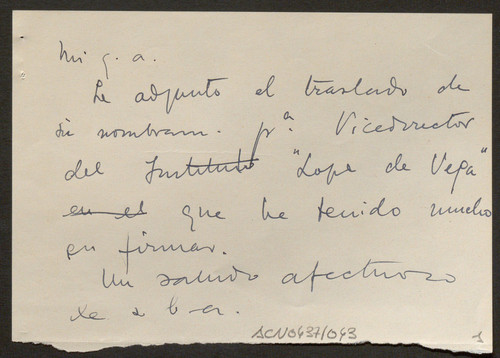 Mi q. a.
Le adjunto el traslado de
su nombram. pª. Vicedirector
del Instituto "Lope de Vega"
en el que he tenido mucho
en firmar.
Un saludo afectuoso
de s b a.
ACN0437/043
1